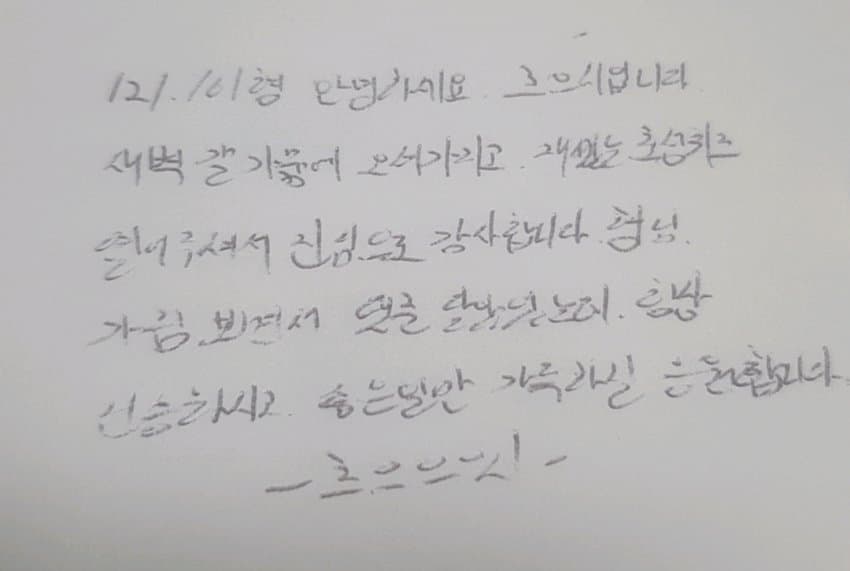 121.101형 안녕하세요. 흐으시입니다
새벽 갤 가뭄에 오셔가지고. 재밌는 호섭퀴즈
열어주셔서 진심으로 감사합니다 형님.
가끔 보면서 댓글 달았는데. 항상
건승하시고. 좋은일만 가득하실 응원합니다
- 흐으으시 -